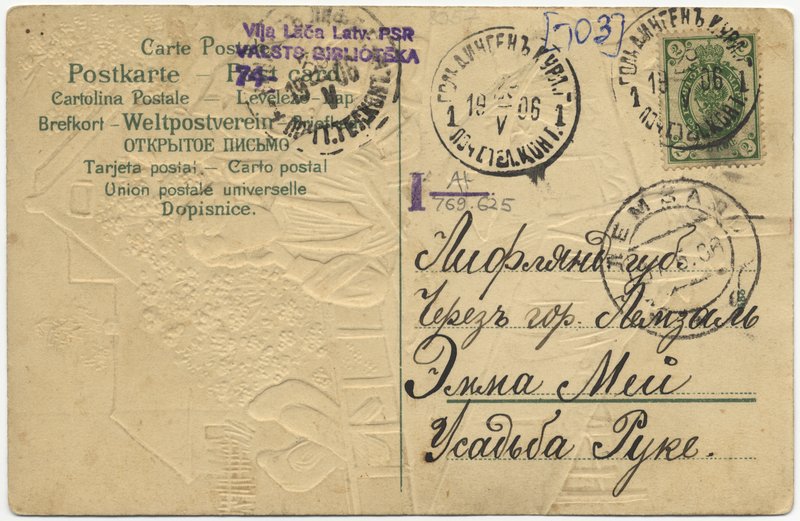 Carte Postale
Postkarte – Post card
Cartolina Postale – Levelező-Lap
Brefkort – Weltpostverein – Briefkaart
ОТКРЫТОЕ ПИСЬМО
Tarjeta postal – Carto postal
Union postale universelle
Dopisnice.
Viļa Lāča Latv. PSR
VALSTS BIBLIOTĒKA
74-
[703]
ГОЛЬДИНГЕНЪ КУРЛ. Г.
1 19 V 06 1
ПОЧ. ТЕЛ. КОН.
ГОЛЬДИНГЕНЪ КУРЛ. Г.
19 06
1
2 2
I AL
769.625
ЛЕМЗАЛЬ
Лифлянд губ.
Черезъ гор. Лемзаль
Эмма Мей
Усадьба Руке.